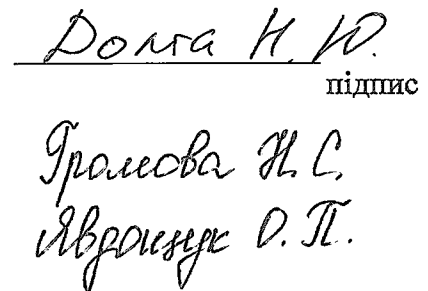 Долга Н. Ю.
підпис
Громова Н. С.
Явдощук О. П.